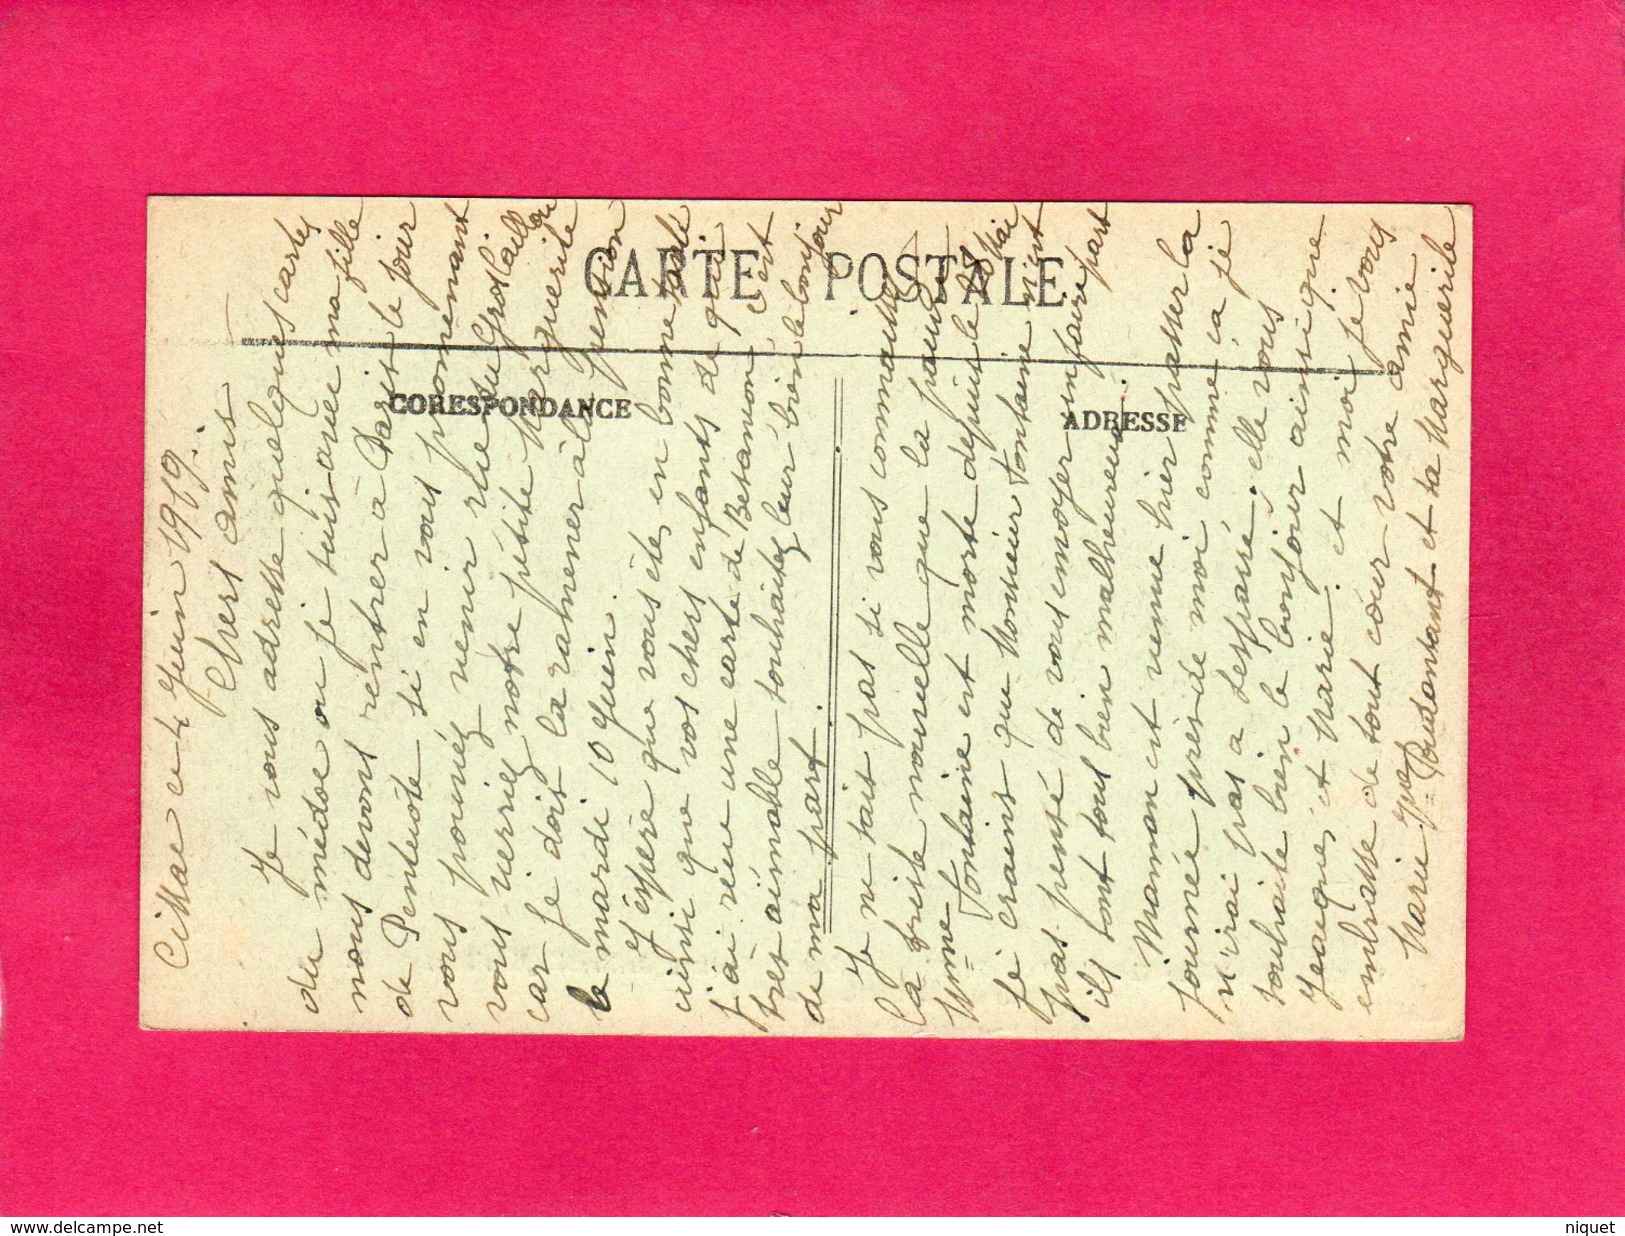 CARTE POSTALE
CORESPONDANCE
ADRESSE
Cissac ce 4 Juin 1919.
Chers amis
Je vous adresse quelques cartes
du médoc ou je suis avec ma fille
nous devons rentrer à Paris le jour
de Pentecôte si en vous promenant
vous pouviez venir rue du Gros Caillou
vous verriez notre petite Marguerite
car je dois la ramener à la pension
le mardi 10 Juin.
J'éspère que vous êtes en bonne santé
ainsi que vos chers enfants de qui
j'ai reçu une carte de Besançon, c'est
très aimable souhaitez leur bien le bonjour
de ma part.
Je ne sais pas si vous connaissez
la triste nouvelle que la pauvre
Mme Fontaine est morte depuis le 28 Mai
je crains que Monsieur Fontaine n'ait
pas pensé de vous envoyer un faire part
ils sont tous bien malheureux.
Maman est venue hier passer la
journée près de moi comme ça je
n'irai pas a Lesparre. elle vous
souhaite bien le bonjour ainsi que
Jacques et Marie. et moi je vous
embrasse de tout cœur votre amie
Marie et ta Marguerite